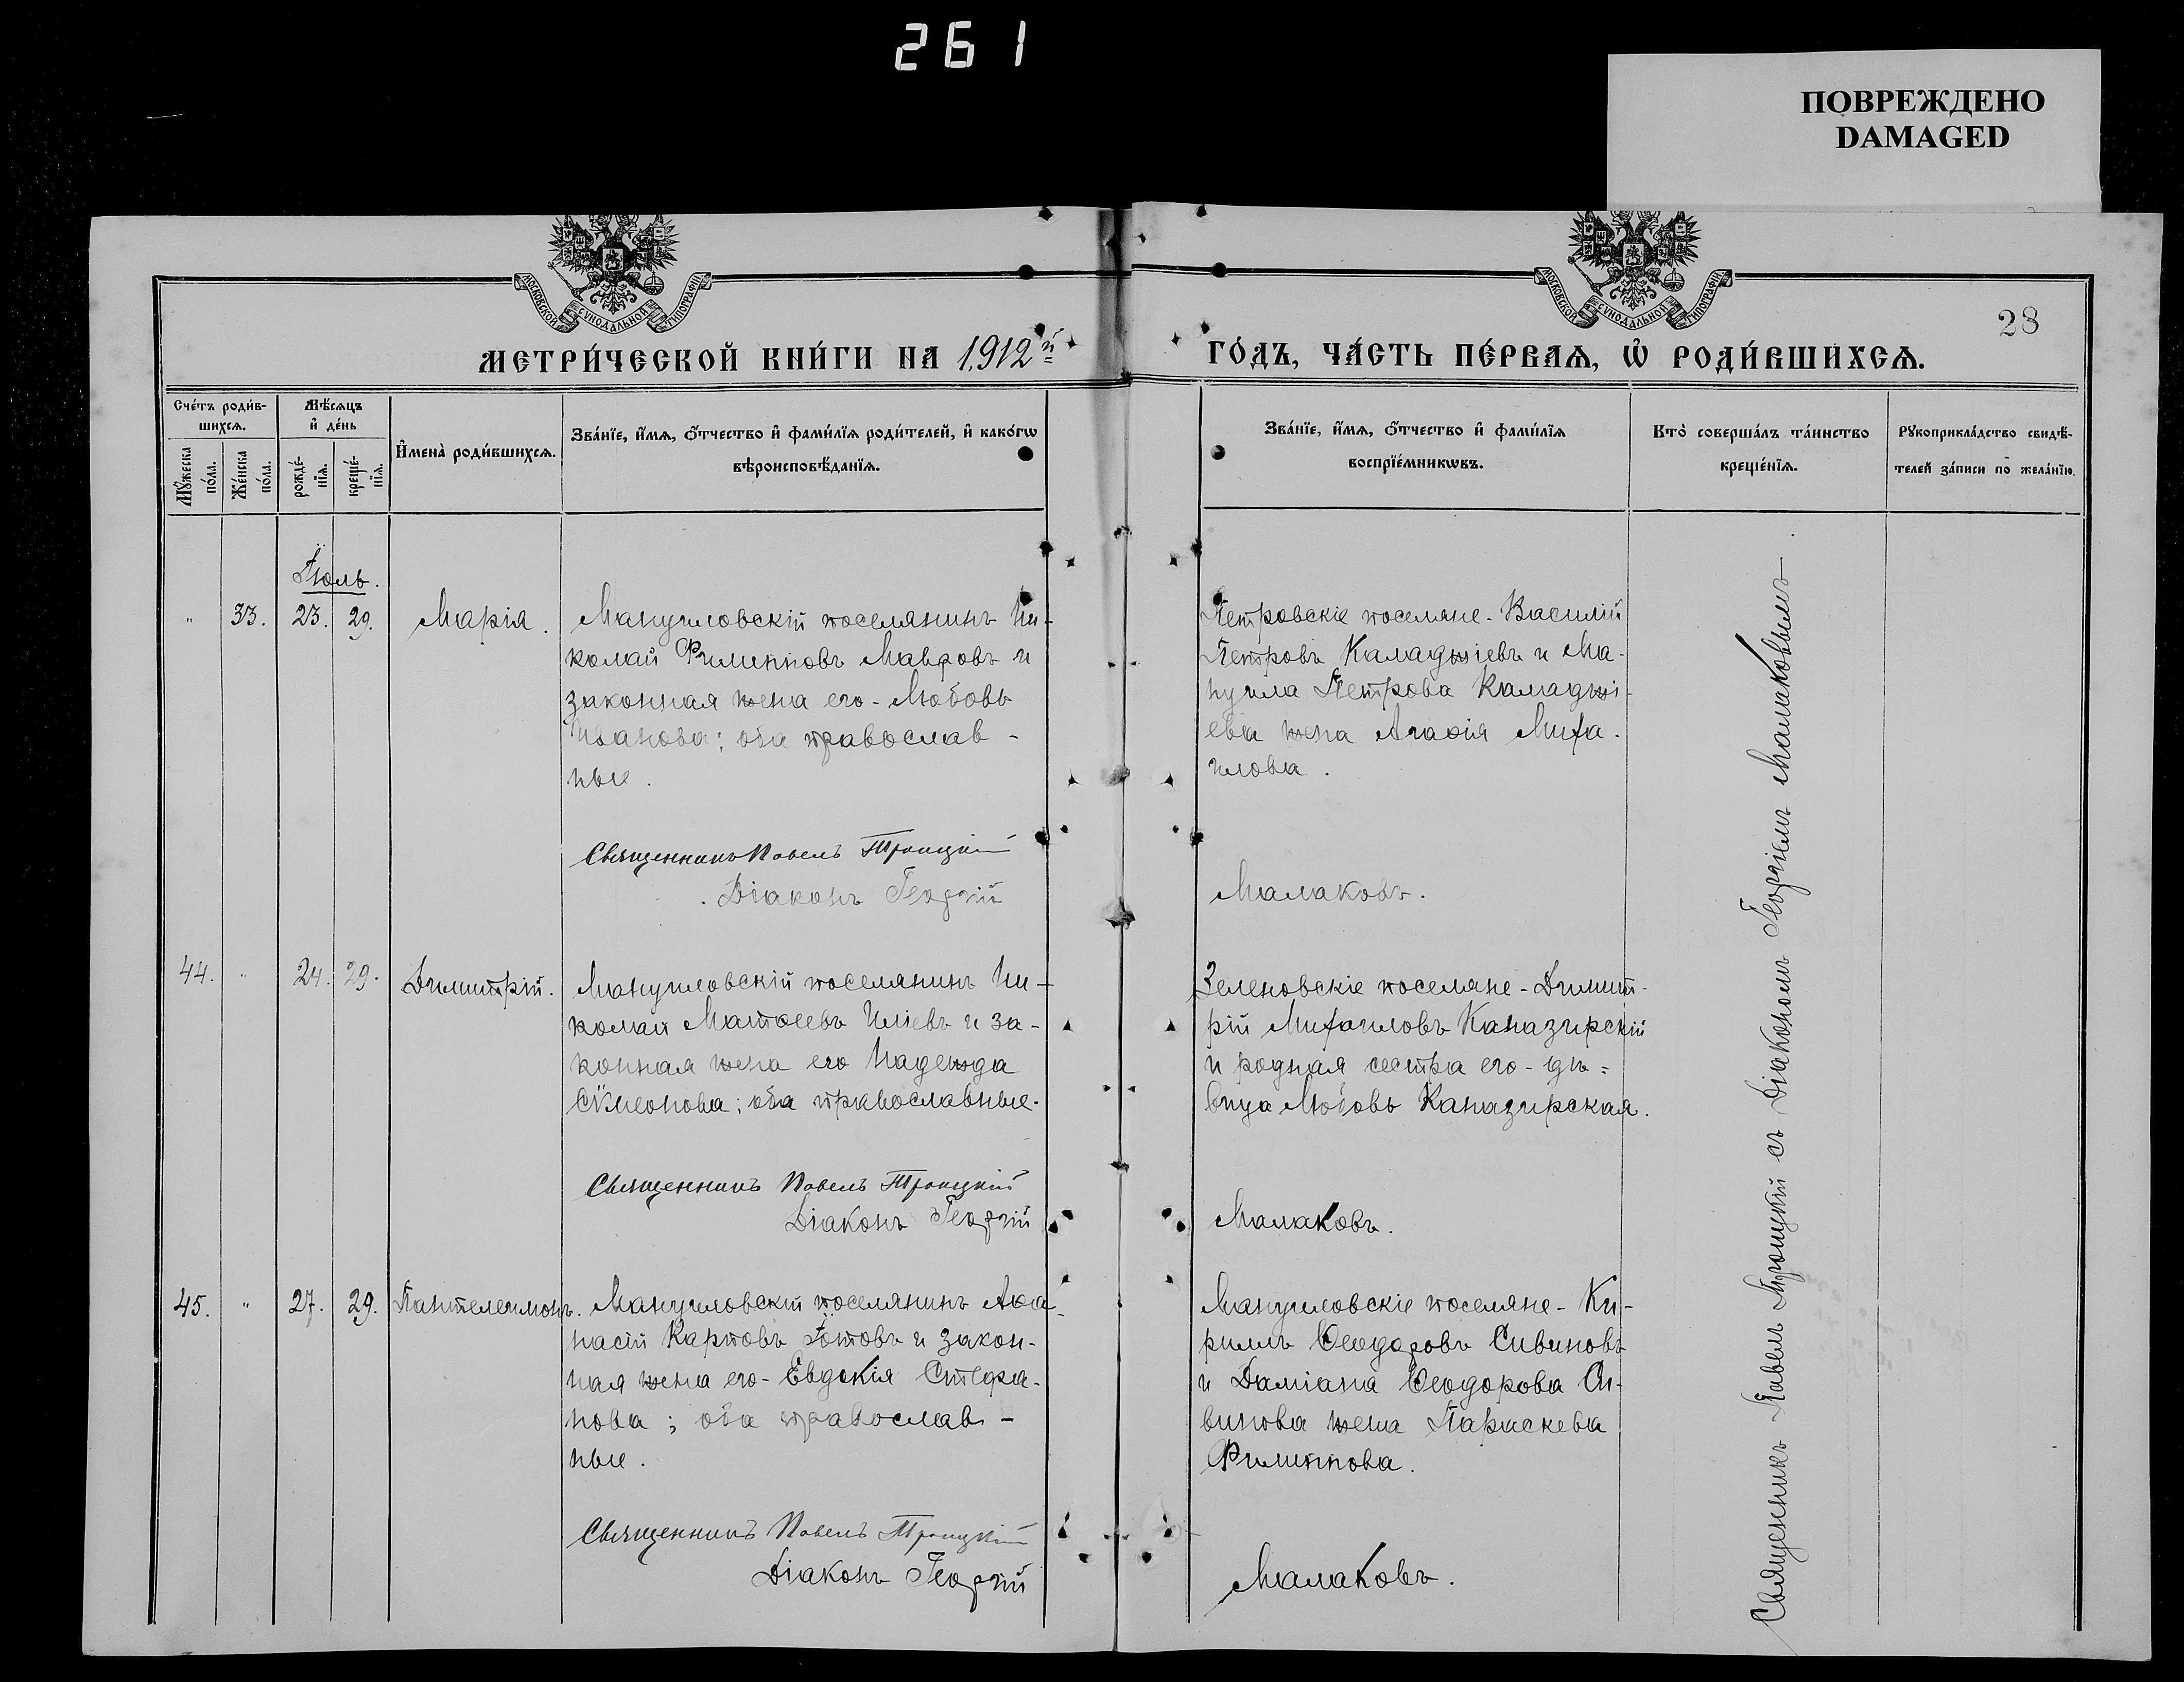 261
ПОВРЕЖДЕНО
DAMAGED
МОСКОВСКОЙ СУНОДАЛЬНОЙ ТИПОГРАФІИ
МОСКОВСКОЙ СУНОДАЛЬНОЙ ТИПОГРАФІИ
28
МЕТРИ́ЧЕСКОЙ КНИ́ГИ НА 1912й
ГО́ДЪ, ЧА́СТЬ ПЕ́РВАѦ, Ѡ҆ РОДИ́ВШИХСѦ.
Сче́тъ роди́в-
шихсѧ.
Мꙋ́жеска
по́ла.
Же́нска
по́ла.
Мѣ́сѧцъ
и҆ де́нь
рожде́-
нїѧ.
креще́-
нїѧ.
И҆мена̀ роди́вшихсѧ.
Зва́нїе, и҆́мѧ, ѻ҆́тчество и҆ фами́лїѧ роди́телей, и҆ како́гѡ
вѣроисповѣ́данїѧ.
Зва́нїе, и҆́мѧ, ѻ҆́тчество и҆ фами́лїѧ
воспрїе́мникѡвъ.
Кто̀ соверша́лъ та́инство
креще́нїѧ.
Рꙋкоприкла́дство свидѣ́-
телей за́писи по жела́нїю.
Іюль.
" 33. 23. 29. Марія.
Мануиловскій поселянинъ Ни-
колай Филипповъ Мавровъ и
законная жена его - Любовь
Иванова; оба православ-
ные.
Священникъ Павелъ Троицкій
Діаконъ Георгій
Петровскіе поселяне - Василій
Петровъ Каладжіевъ и Ма-
нуила Петрова Каладжі-
ева жена Агаѳія Миха-
илова.
Малаковъ.
44. " 24. 29. Димитрій.
Мануиловскій поселянинъ Ни-
колай Матѳеевъ Иліевъ и за-
конная жена его Надежда
Сѵмеонова; оба православные.
Священникъ Павелъ Троицкій
Діаконъ Георгій
Зеленовскіе поселяне - Димит-
рій Михаиловъ Каназирскій
и родная сестра его - дѣ-
вица Любовь Каназирская.
Малаковъ.
45. " 27. 29. Пантелеимонъ.
Мануиловскій поселянинъ Аѳа-
насій Карповъ Готовъ и закон-
ная жена его - Евдокія Стефа-
нова; оба православ-
ные.
Священникъ Павелъ Троицкій
Діаконъ Георгій
Мануиловскіе поселяне - Ки-
рилъ Ѳеодоровъ Сивиновъ
и Даміана Ѳеодорова Си-
винова жена Параскева
Филиппова.
Малаковъ.
Священникъ Павелъ Троицкій съ Діакономъ Георгіемъ Малаковымъ.